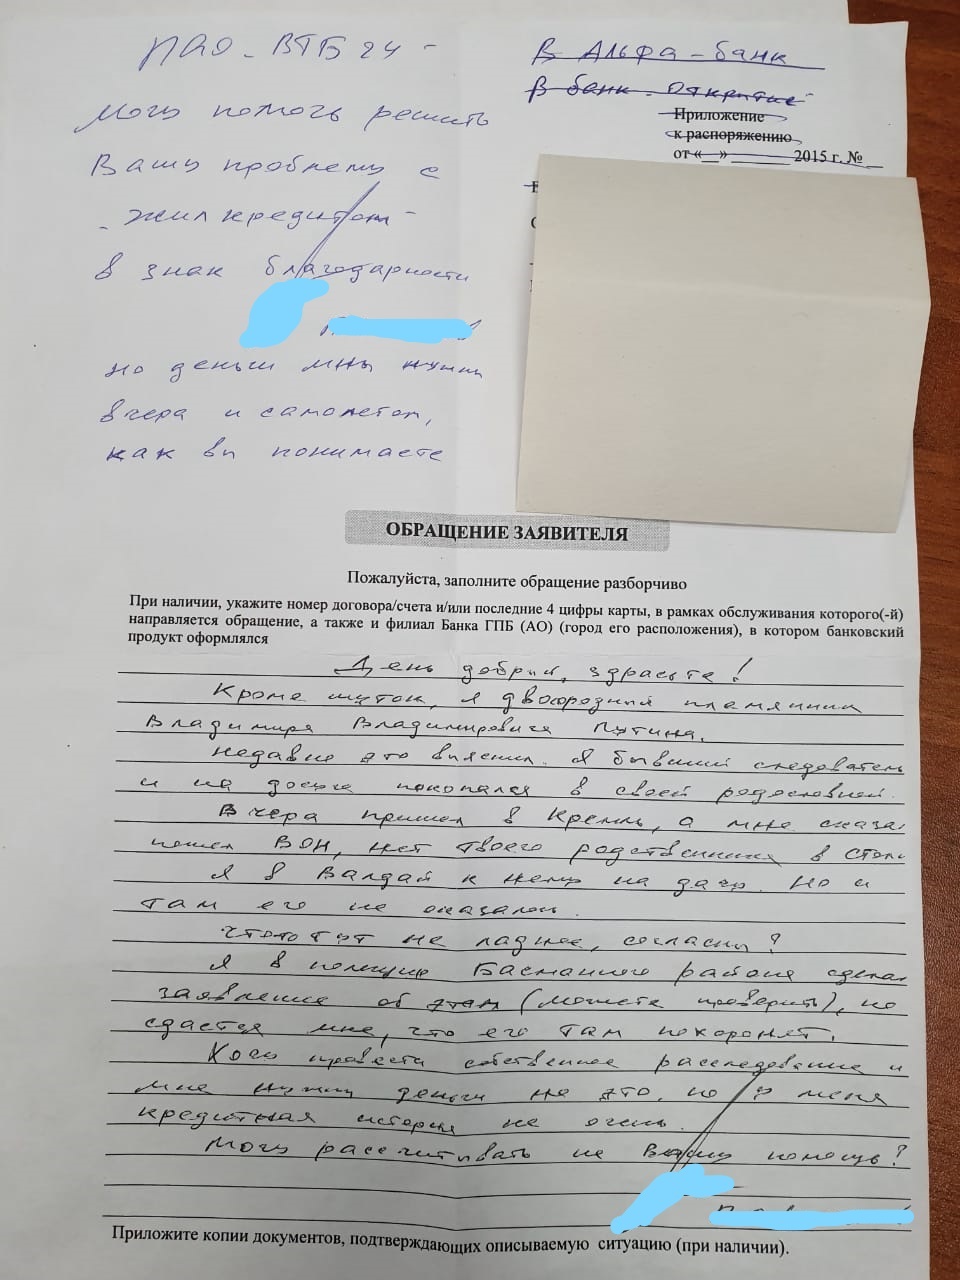 ПАО - ВТБ 24 -
Могу помочь решить
Вашу проблему с
"жилкредитом"
в знак благодарности
но деньги мны нужны
вчера и самолетом,
как вы понимаете
В Альфа-банк
В банк "Открытие"
Приложение
к распоряжению
от «__» ________ 2015 г. № __
ОБРАЩЕНИЕ ЗАЯВИТЕЛЯ
Пожалуйста, заполните обращение разборчиво
При наличии, укажите номер договора/счета и/или последние 4 цифры карты, в рамках обслуживания которого(-й)
направляется обращение, а также и филиал Банка ГПБ (АО) (город его расположения), в котором банковский
продукт оформлялся
День добрый, здрасьте!
Кроме шуток, я двоюродный племянник
Владимира Владимировича Путина.
Недавно это выяснил. Я бывший следователь
и на досуге покопался в своей родословной.
Вчера пришел в Кремль, а мне сказа
пошел ВОН, нет твоего родственника в столи
Я в Валдай к нему на дачу. Но и
там его не оказалось.
Чтото тут не ладное, согласны?
Я в полицию Басманного района сделал
заявление об этом (можете проверить), но
сдается мне, что его там похоронят.
Хочу провести собственное расследование и
мне нужны деньги на это, но у меня
кредитная история не очень.
Могу рассчитывать на Вашу помощь?
Приложите копии документов, подтверждающих описываемую ситуацию (при наличии).